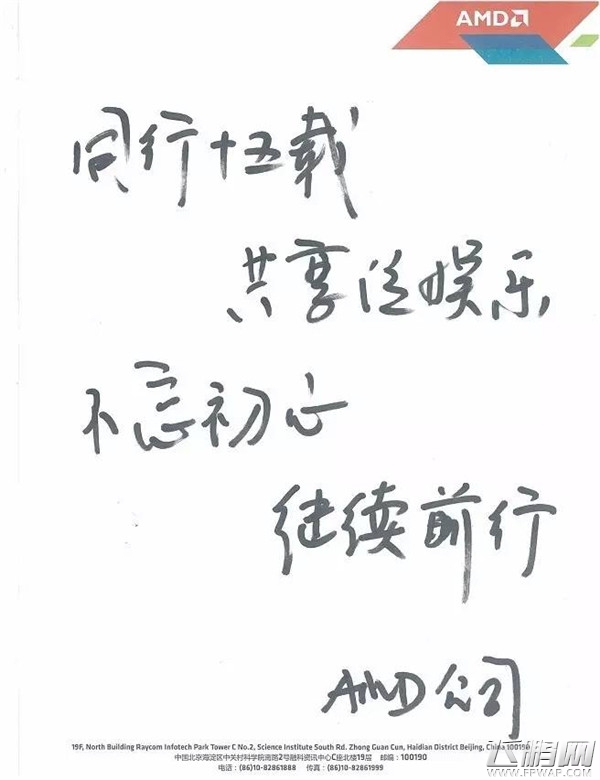 AMD
同行十五载
共享泛娱乐
不忘初心
继续前行
AMD 公司
19F, North Building Raycom Infotech Park Tower C No.2, Science Institute South Rd. Zhong Guan Cun, Haidian District Beijing, China 100190
中国北京海淀区中关村科学院南路2号融科资讯中心C座北楼19层 邮编：100190
电话：(86)10-82861888 传真：(86)10-82861999
飞鹏网
WWW.FPWAP.COM